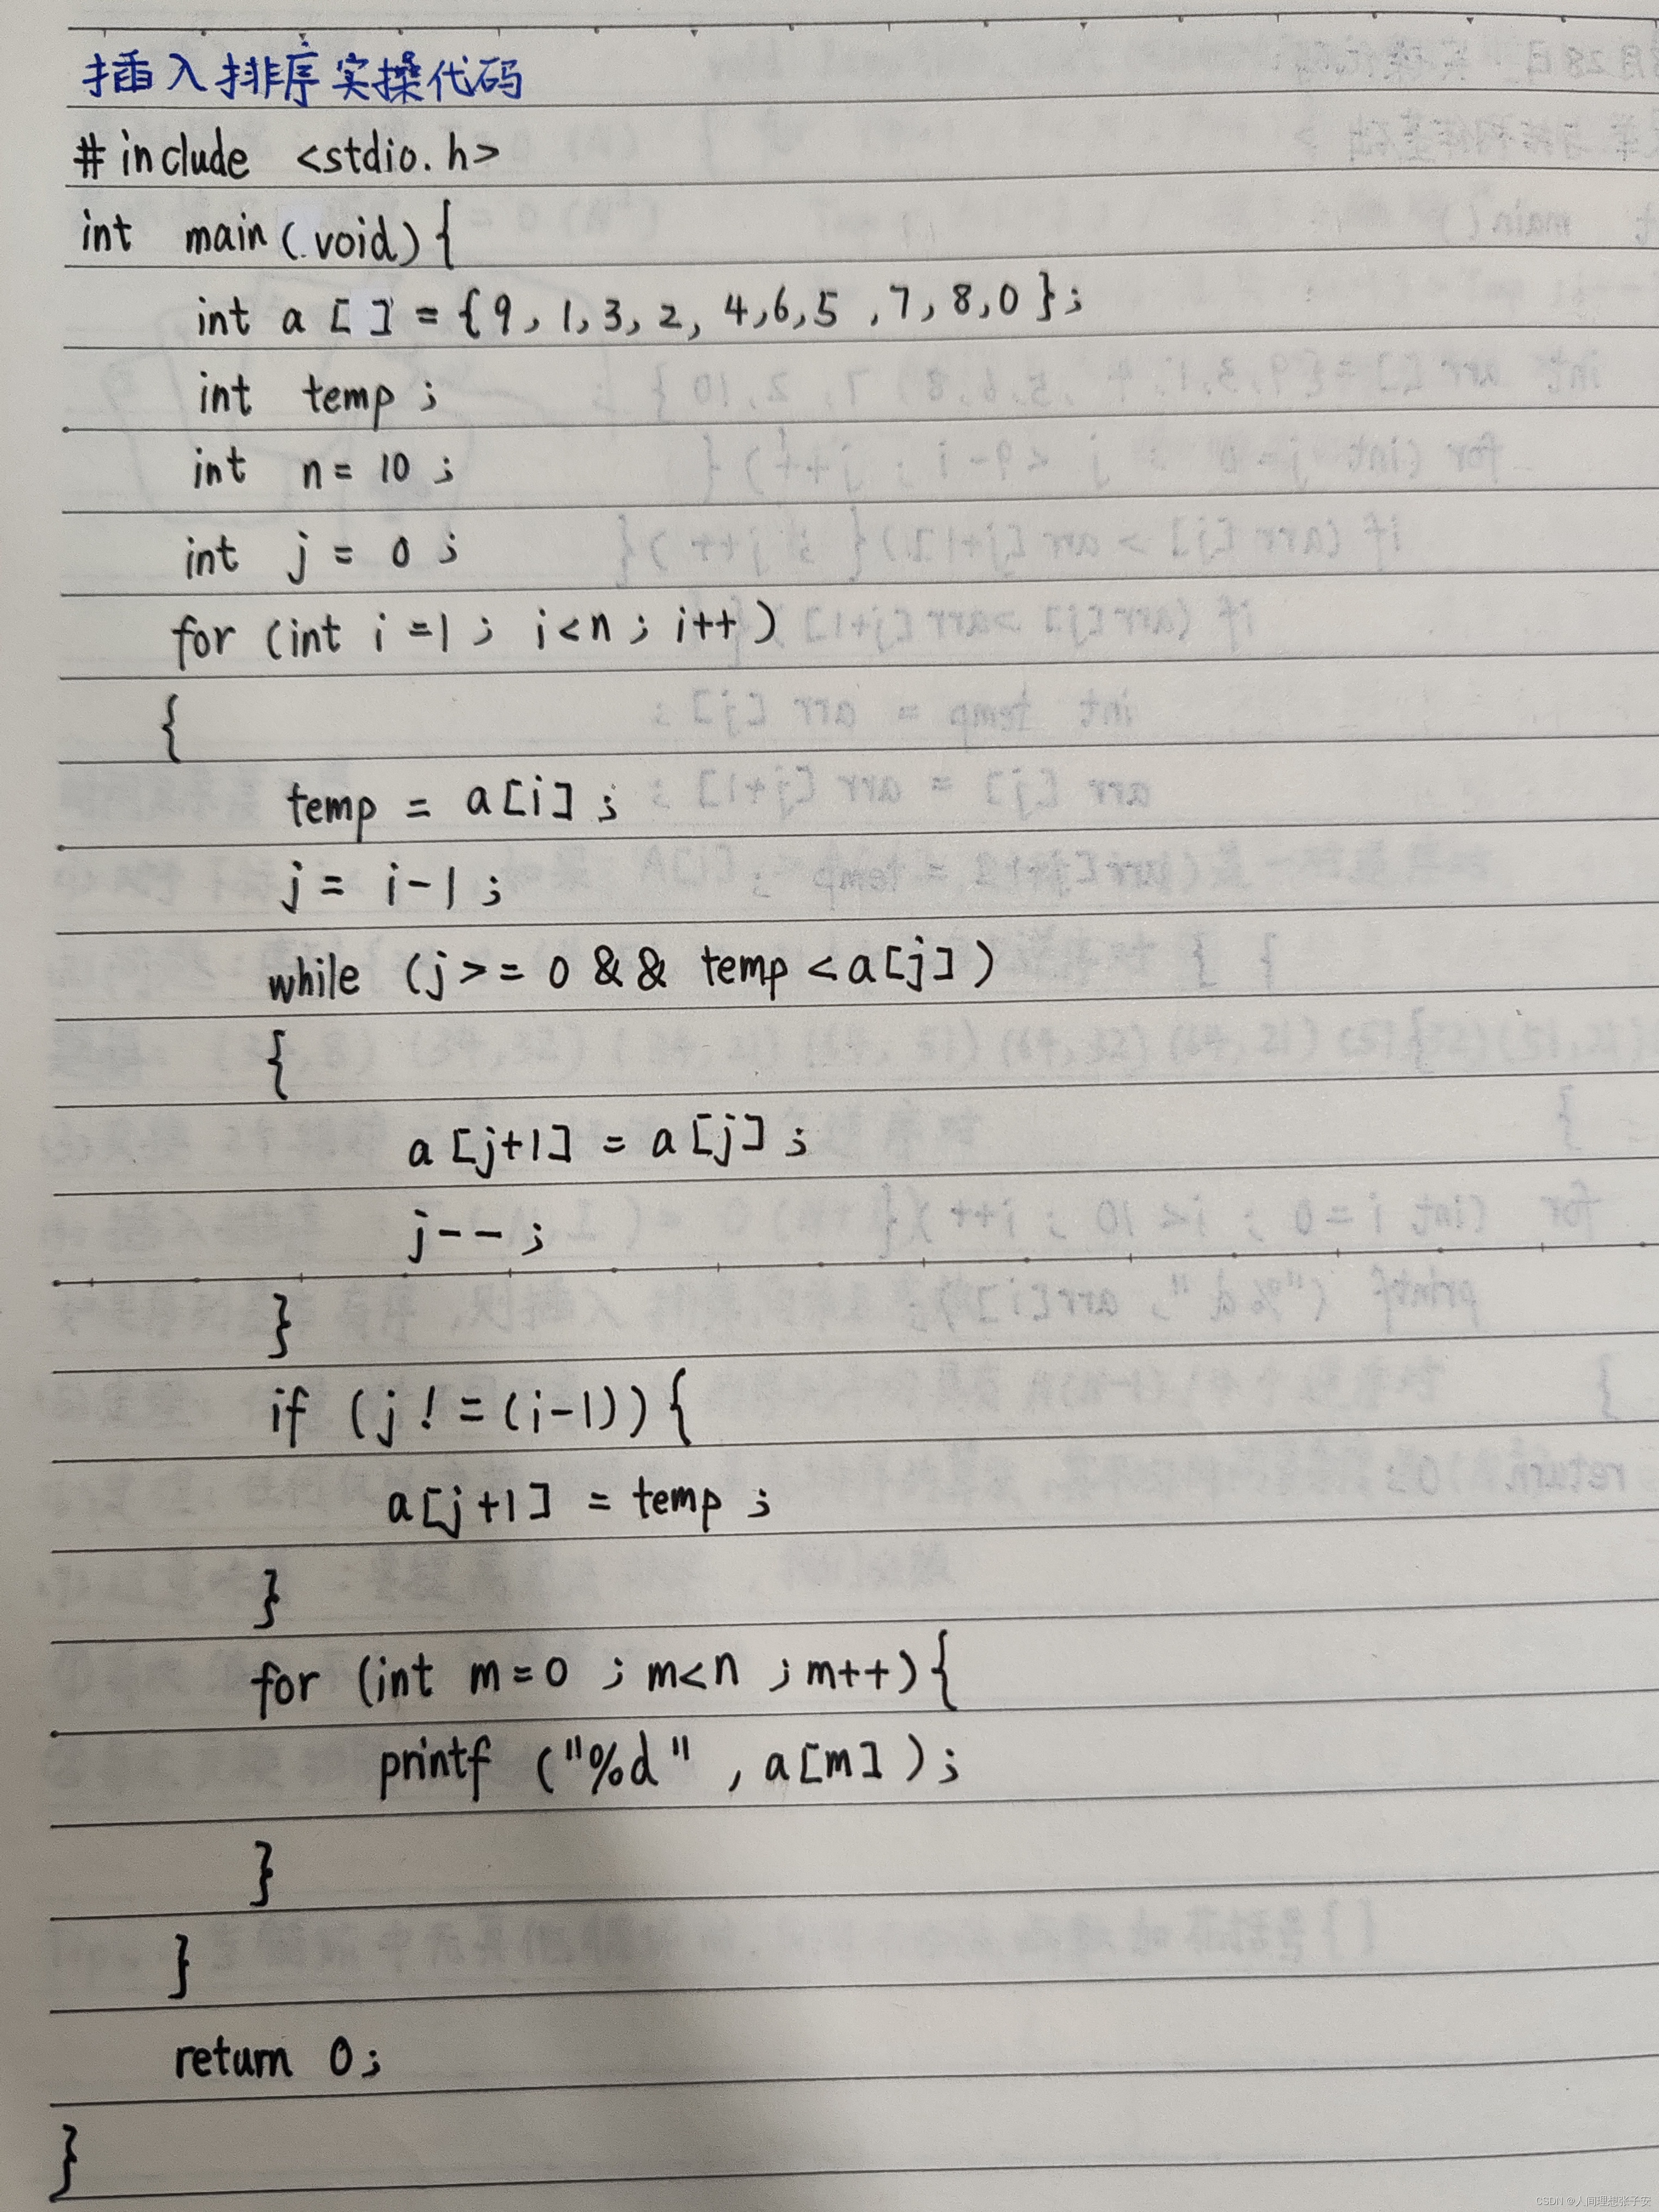 插入排序实操代码
#include <stdio.h>
int main(void){
int a[]={9,1,3,2,4,6,5,7,8,0};
int temp;
int n=10;
int j=0;
for (int i=1; i<n; i++)
{
temp = a[i];
j = i-1;
while (j>=0 && temp<a[j])
{
a[j+1] = a[j];
j--;
}
if (j!=(i-1)){
a[j+1] = temp;
}
for (int m=0; m<n; m++){
printf ("%d", a[m]);
}
}
return 0;
}
CSDN @人间理想张子安